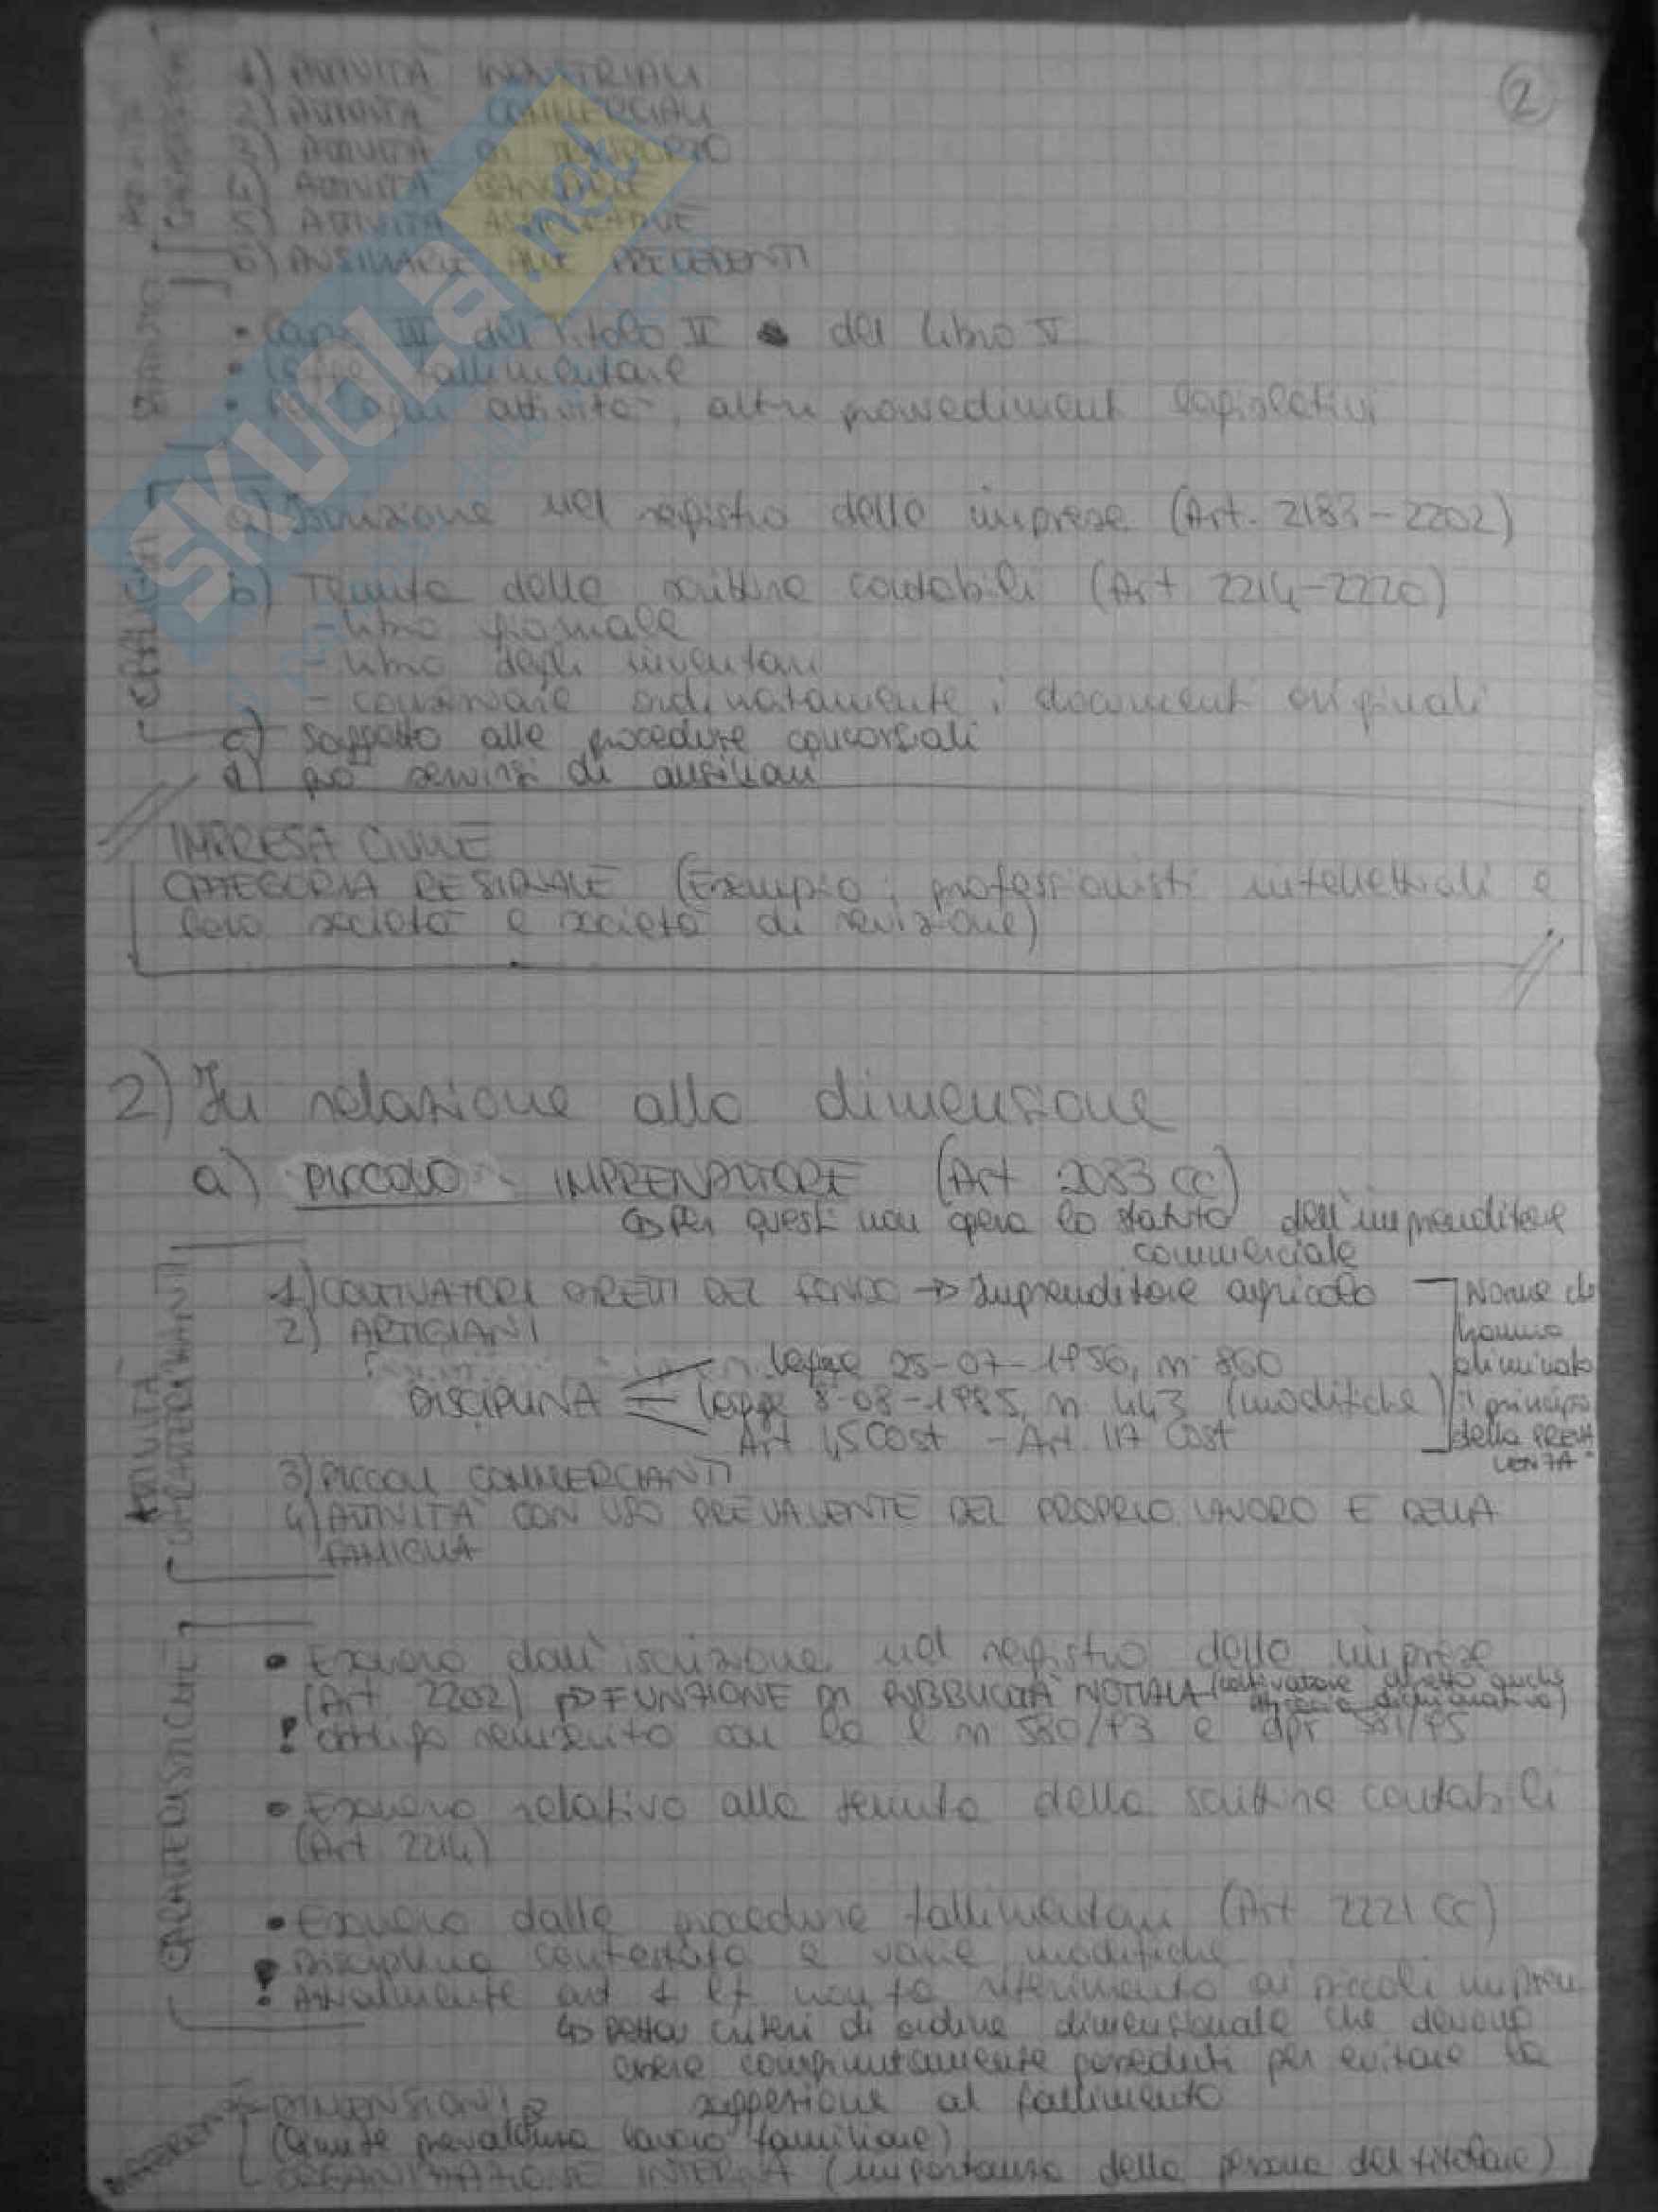 2
1) ATTIVITÀ INDUSTRIALI
2) ATTIVITÀ COMMERCIALI
3) ATTIVITÀ DI TRASPORTO
4) ATTIVITÀ BANCARIE
5) ATTIVITÀ ASSICURATIVE
6) AUSILIARIE ALLE PRECEDENTI
SKUOLA.net
STATUTO
• Capo III del titolo II del libro V
• Legge fallimentare
• Per ogni attività, altri provvedimenti legislativi
a) Iscrizione nel registro delle imprese (Art. 2183-2202)
b) Tenuta delle scritture contabili (Art. 2214-2220)
- libro giornale
- libro degli inventari
- conservare ordinatamente i documenti originali
c) Soggetto alle procedure concorsuali
d) può servirsi di ausiliari
IMPRESA CIVILE
CATEGORIA RESIDUALE (Esempio: professionisti intellettuali e
loro società e società di revisione)
2) In relazione alla dimensione
a) PICCOLO IMPRENDITORE (Art 2083 cc)
↳ Per questi non opera lo statuto dell'imprenditore
commerciale
ATTIVITÀ
1) COLTIVATORI DIRETTI DEL FONDO → Imprenditore agricolo
2) ARTIGIANI
DISCIPLINA
legge 25-07-1956, n. 860
legge 8-08-1985, n 443 (modifiche)
Art 45 Cost - Art 117 Cost
Norme che
hanno
eliminato
il principio
della PREVA
LENZA
3) PICCOLI COMMERCIANTI
4) ATTIVITÀ CON USO PREVALENTE DEL PROPRIO LAVORO E DELLA
FAMIGLIA
CARATTERISTICHE
• Esonero dall'iscrizione nel registro delle imprese
(Art. 2202) → FUNZIONE DI PUBBLICITÀ NOTIZIA (coltivatore diretto anche
efficacia dichiarativa)
! obbligo reinserito con la l n 580/93 e dpr 581/95
• Esonero relativo alla tenuta delle scritture contabili
(Art 2214)
• Esonero dalle procedure fallimentari (Art 2221 cc)
! Disciplina contestata e varie modifiche
! Attualmente art 1 lf non fa riferimento ai piccoli impren
↳ Detta criteri di ordine dimensionale che devono
essere congiuntamente posseduti per evitare la
soggezione al fallimento
DIMENSIONI
(Conta prevalenza lavoro familiare)
ORGANIZZAZIONE INTERNA (importanza della persona del titolare)